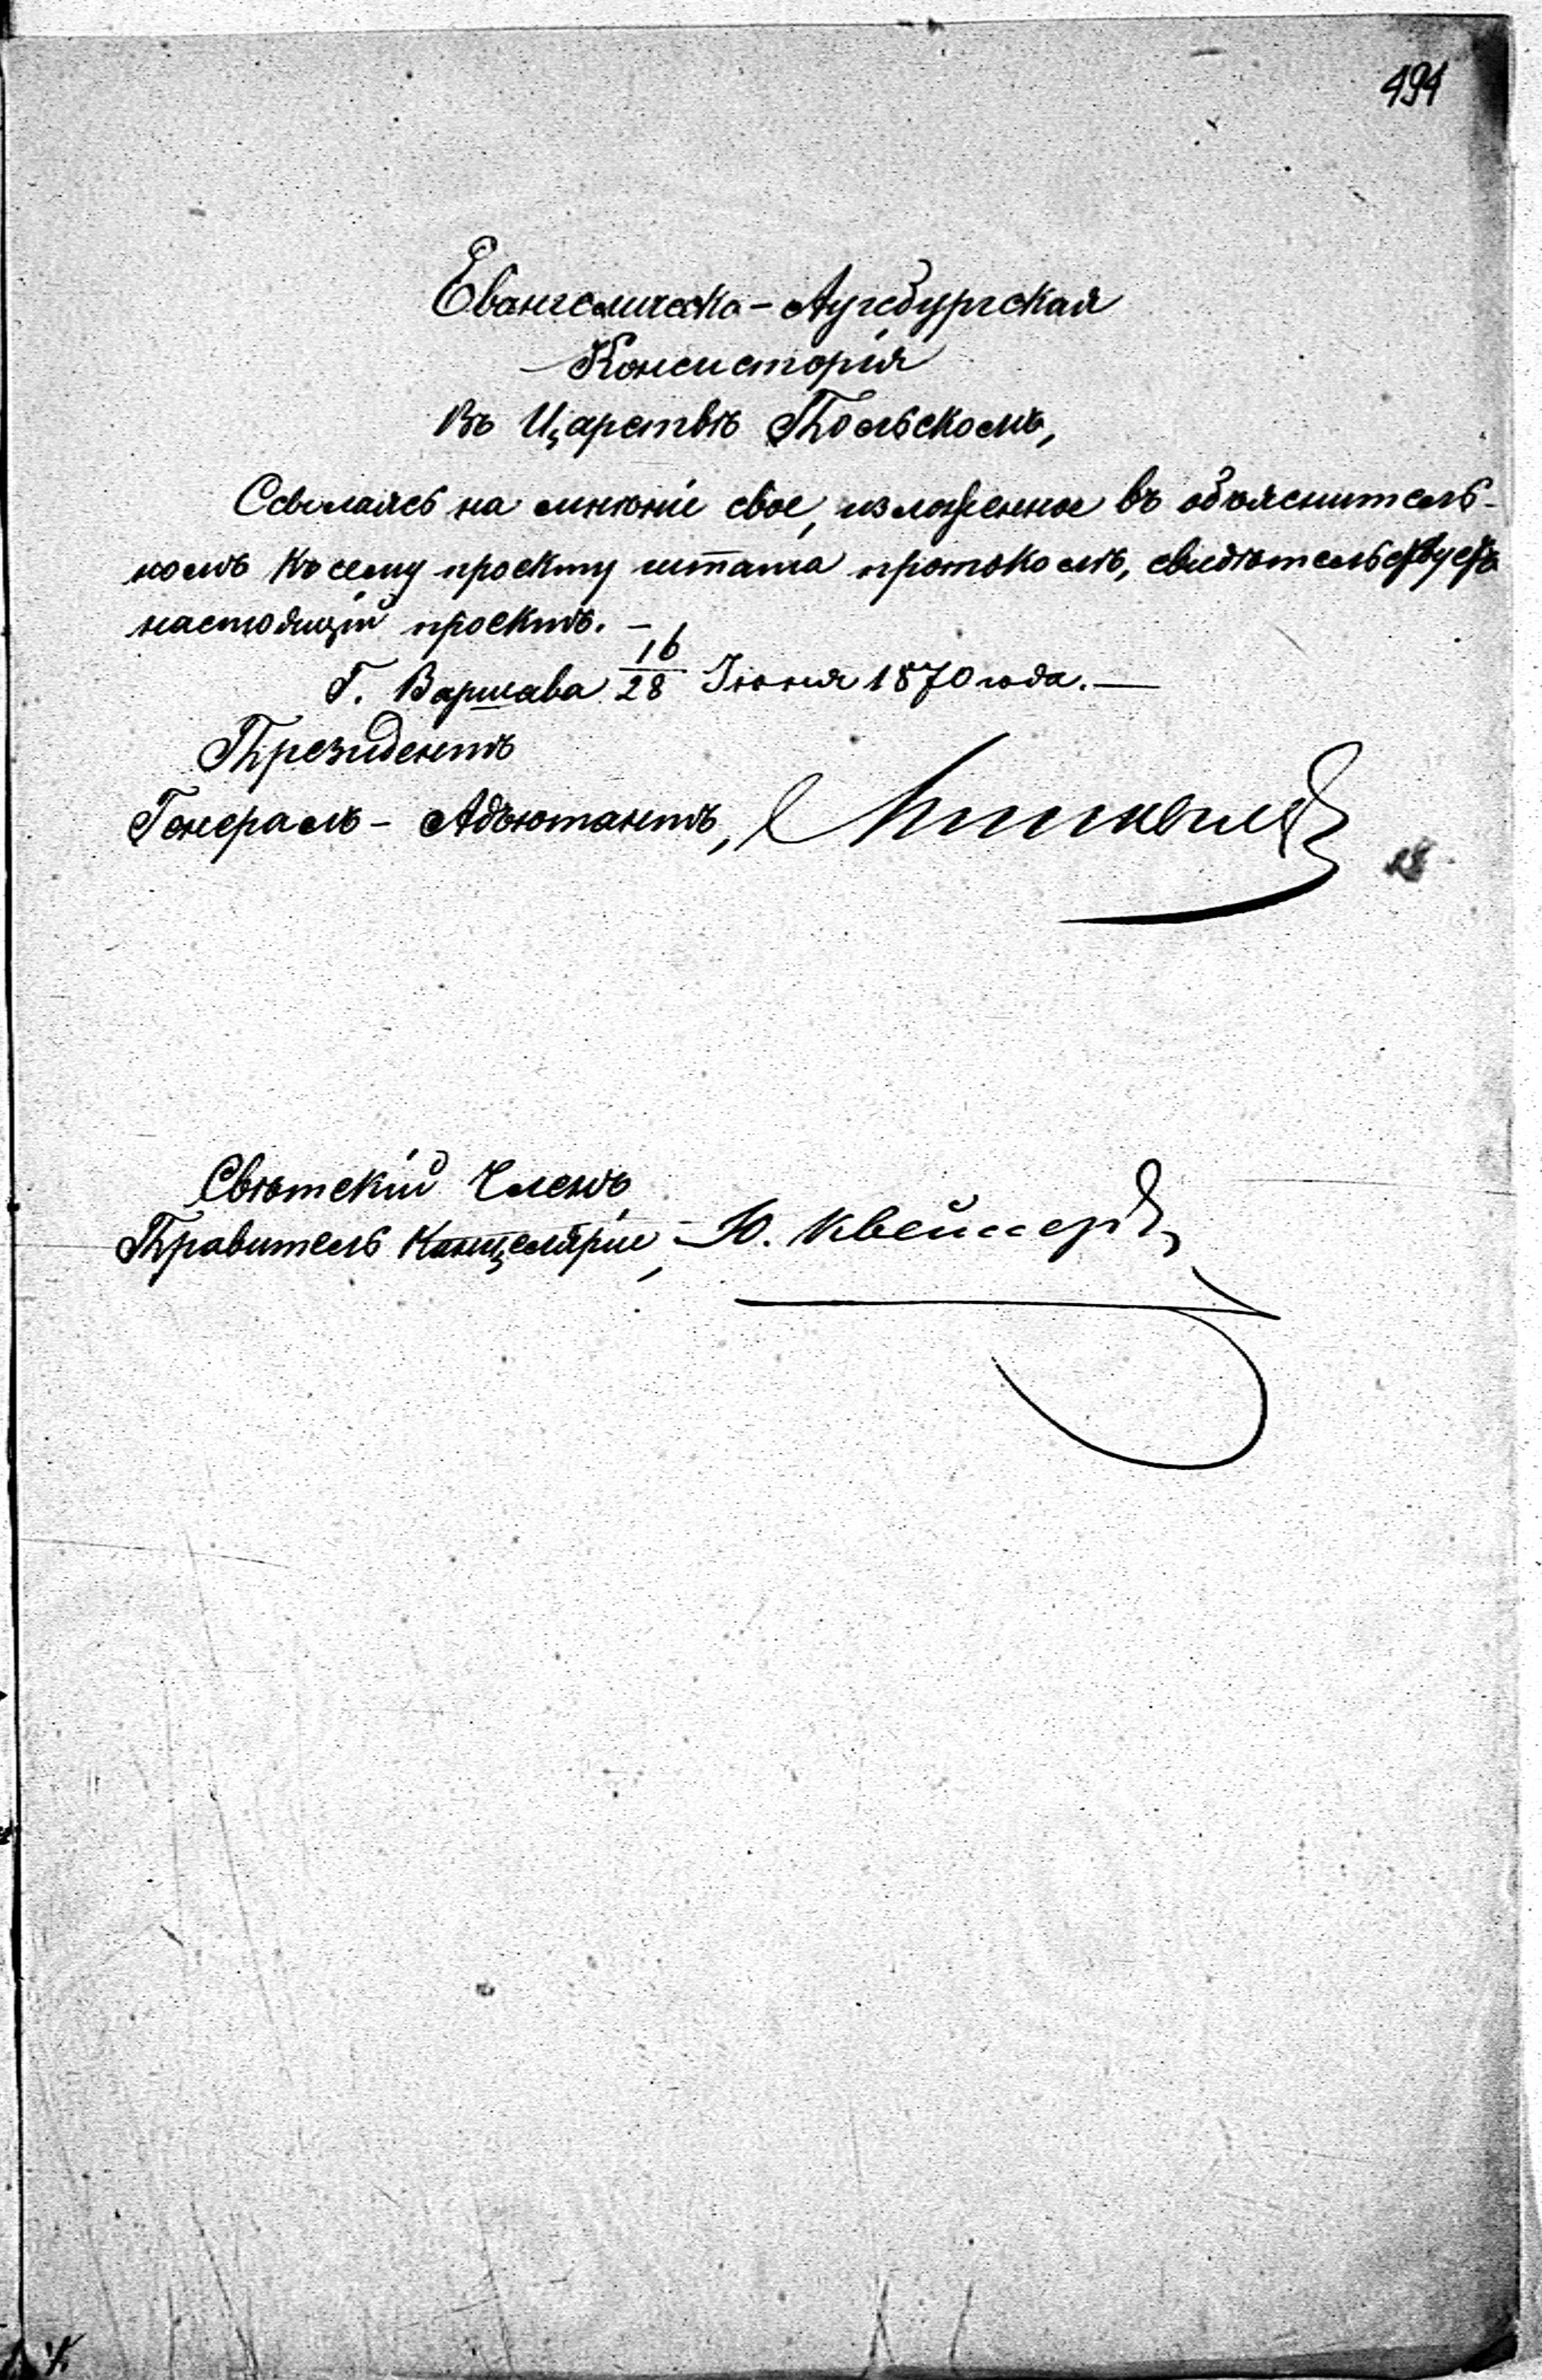 494
Евангелическо-Аугсбургская
Консисторія
Въ Царствѣ Польскомъ,
Ссылаясь на мнѣніе свое, изложенное въ объяснитель-
номъ къ сему проекту штата протоколѣ, свидѣтельствуетъ
настоящій проектъ. —
Г. Варшава 16/28 Іюня 1870 года. —
Президентъ
Генералъ-Адъютантъ,
Свѣтскій Членъ
Правитель Канцеляріи, Ю. Квейссеръ